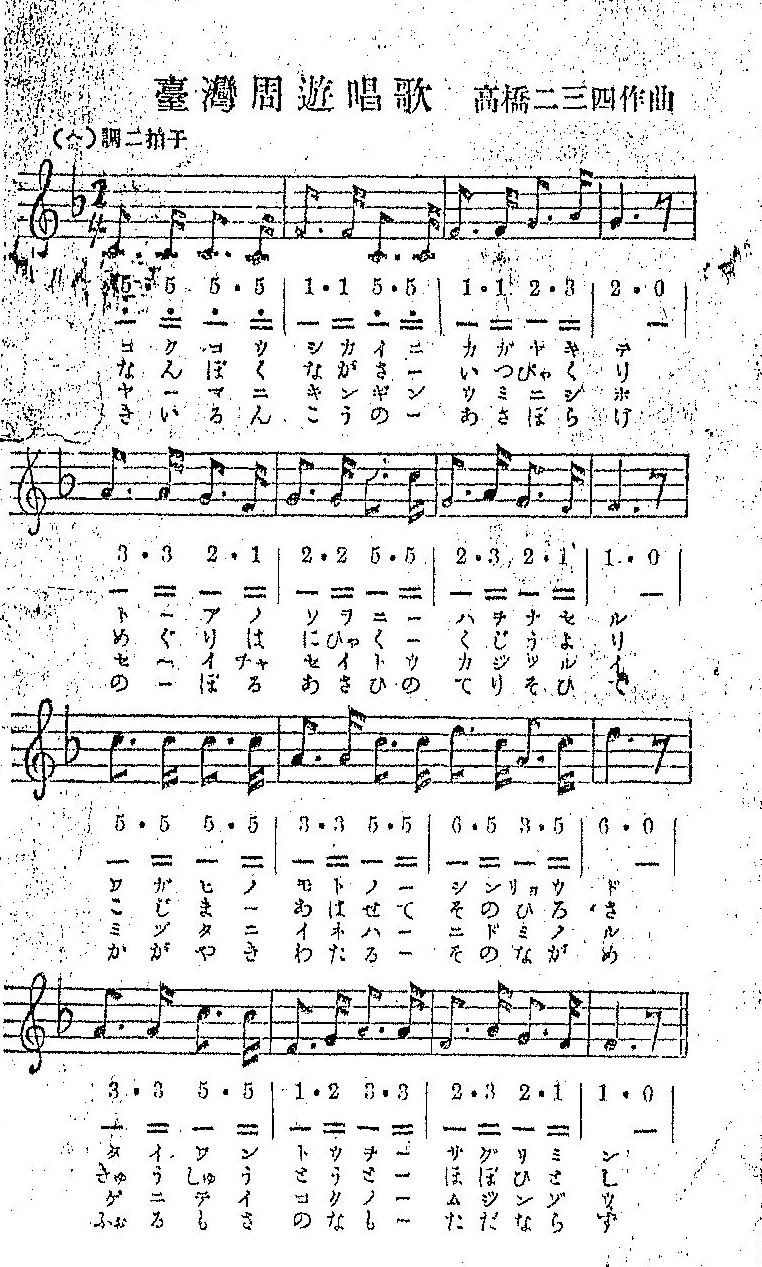 臺灣周遊唱歌 高橋二三四作曲
(ヘ)調二拍子
2
4
5・5 5・5 | 1・1 5・5 | 1・1 2・3 | 2・0 |
コ ク コ ウ シ カ イ ニ カ ガ ヤ キ テ
な ん ぼ く な が さ ー い つ びゃ く り
ヤ ー マ ニ キ ン ギ ン ウ ミ ニ シ ホ
き い る ん こ う の ー あ さ ぼ ら け
3・3 2・1 | 2・2 5・5 | 2・3 2・1 | 1・0 |
ト ー ア ノ ソ ヲ ニ ー ハ チ ナ セ ル
め ぐ り は に ひゃ く ー く じ う よ り
セ ー イ チャ セ イ ト ウ カ ジ ツ ル イ
の ー ぼ る あ さ ひ の て り そ ひ て
5・5 5・5 | 3・3 5・5 | 6・5 3・5 | 6・0 |
ワ ガ ヒ ノ モ ト ノ ー シ ン リョ ウ ド
こ じ ま ー あ は せ て そ の ひ ろ さ
ミ ヅ タ ニ イ ネ ハ ー ニ ド ミ ノ ル
か が や き わ た る ー そ の な が め
3・3 5・5 | 1・2 3・3 | 2・3 2・1 | 1・0 |
タ イ ワ ン ト ウ チ ー サ グ リ ミ ン
きゅ う しゅ う と う と ー ほ ぼ ひ と し
ゲ ニ テ イ コ ク ノ ー ム ジ ン ゾ ウ
ふぉ る も さ の な も ー た だ な ら ず